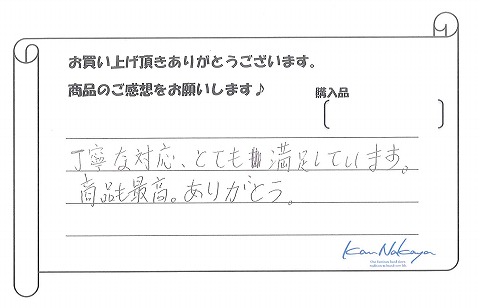 お買い上げ頂きありがとうございます。
商品のご感想をお願いします♪
購入品
丁寧な対応、とても満足しています。
商品も最高。ありがとう。
Kan Nakaya